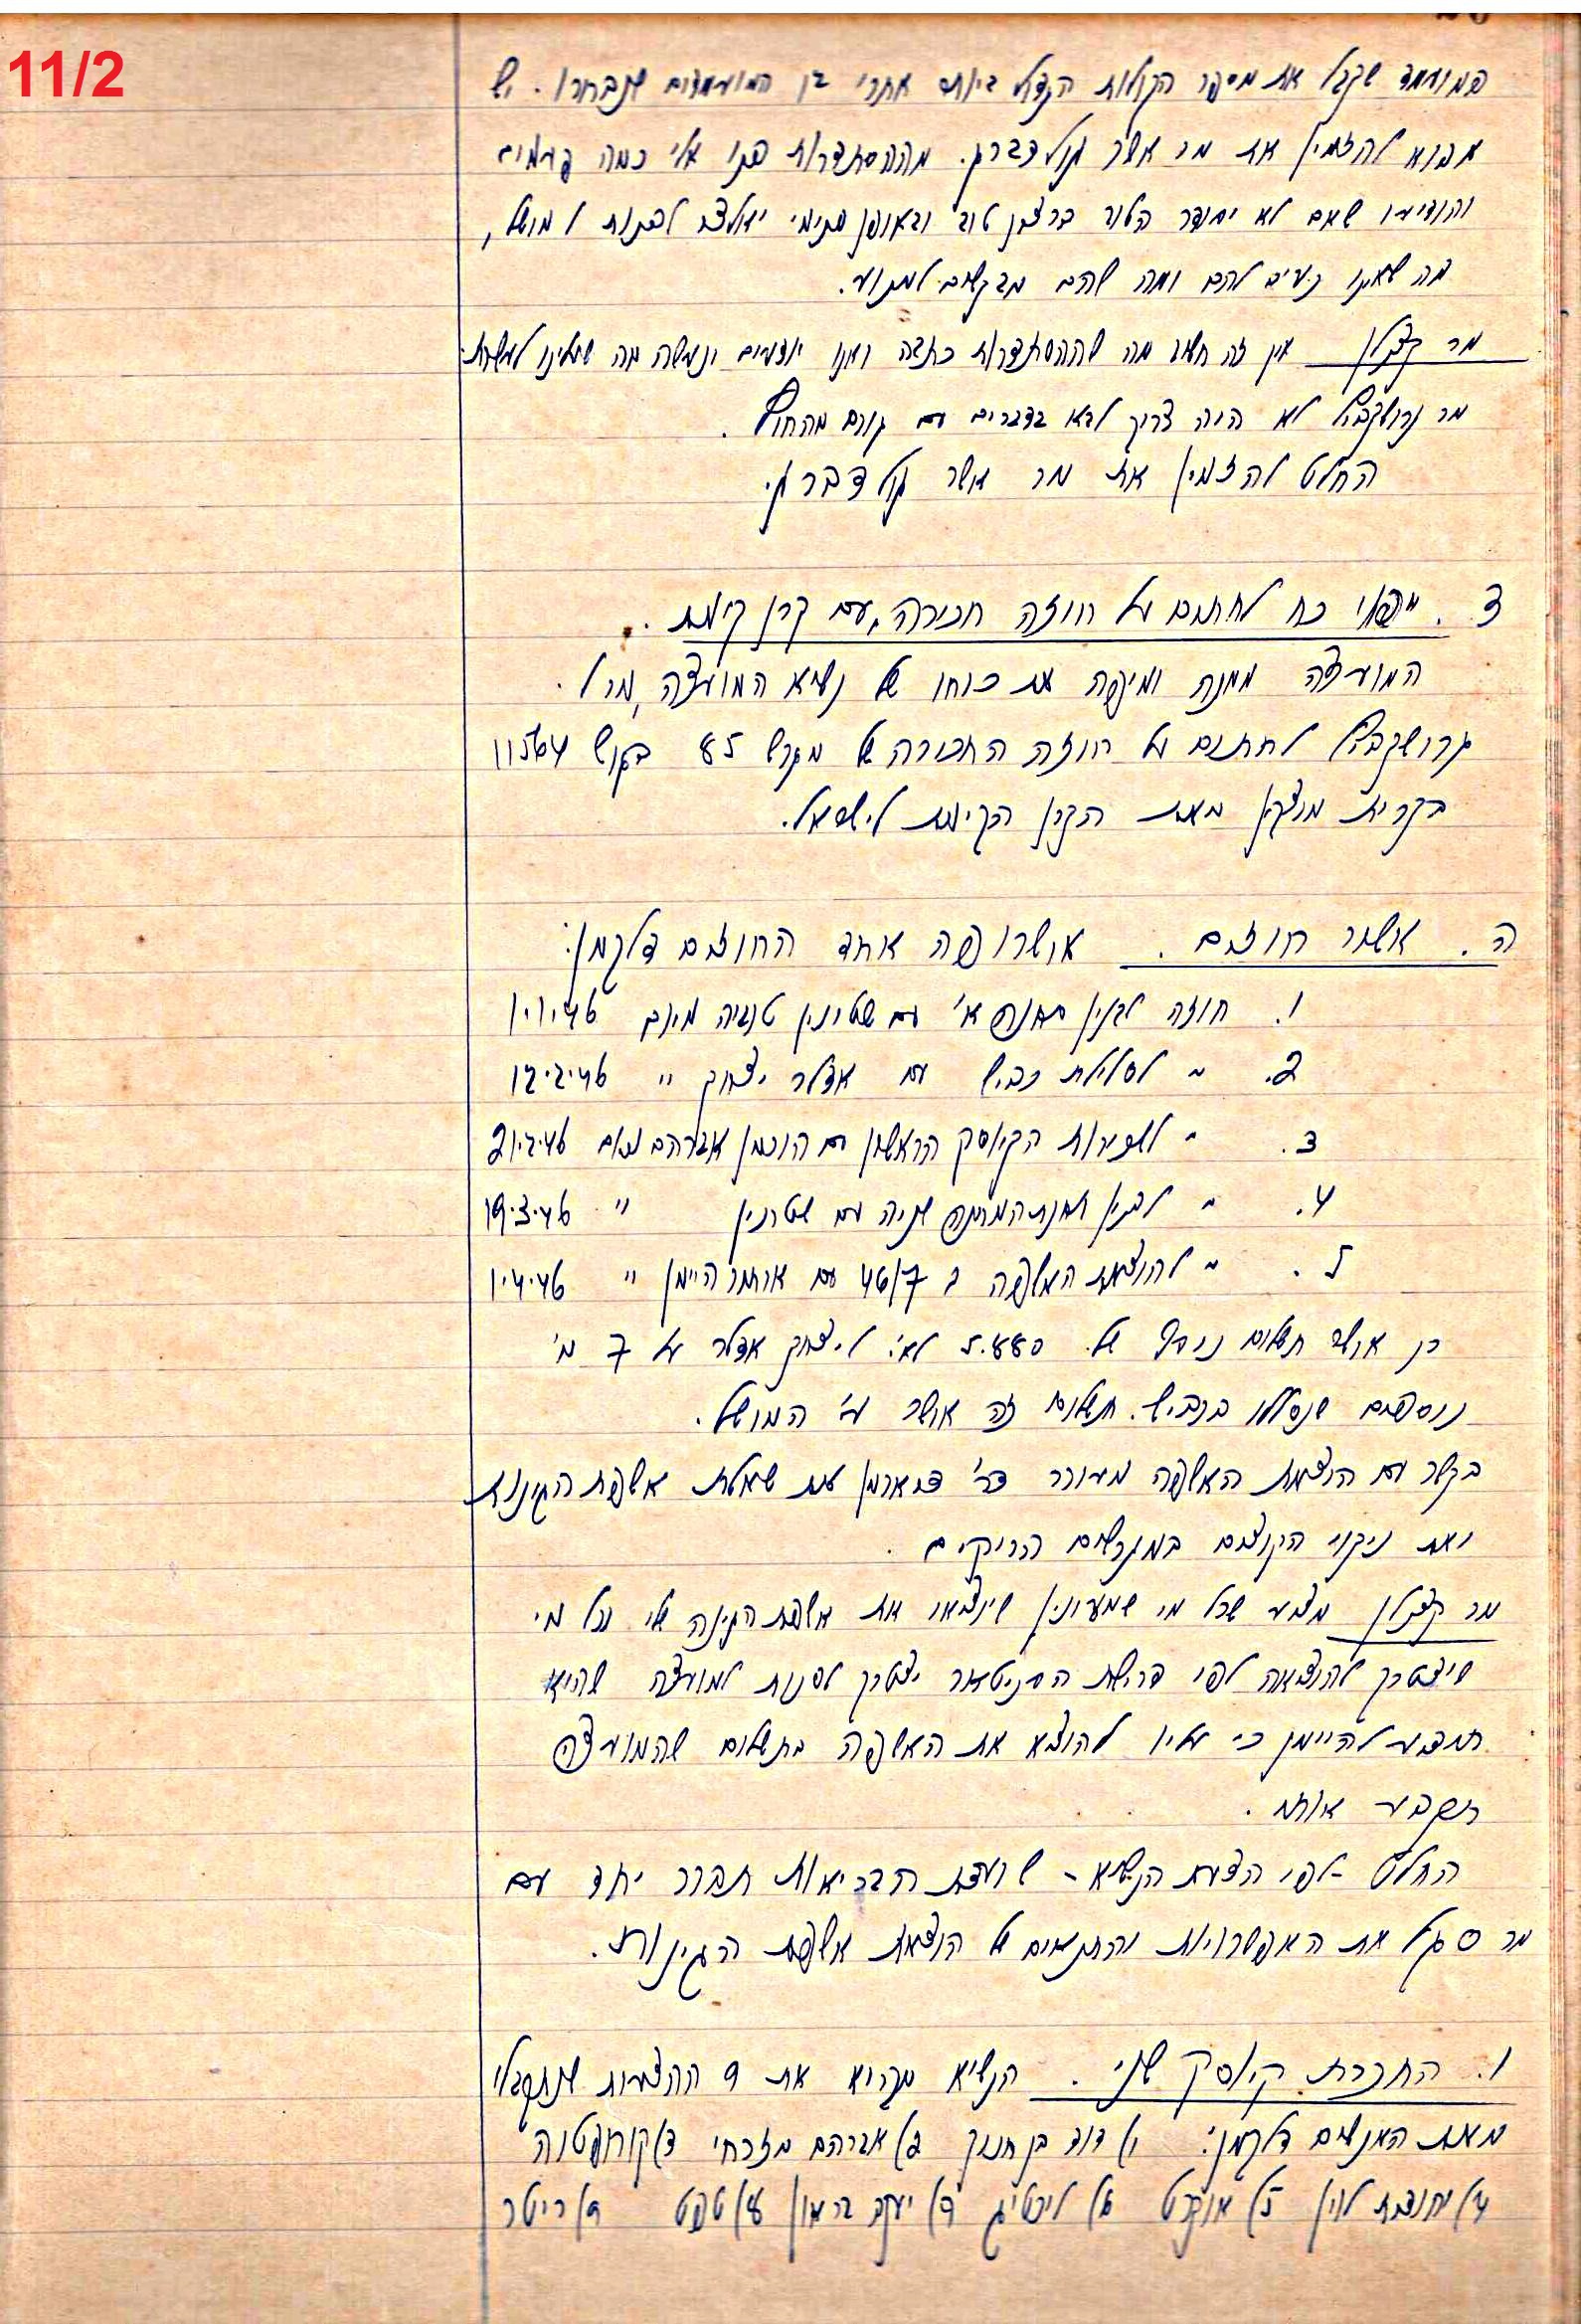 11/2
המועמד שקבל את מספר הקולות הגדול ביותר אחרי בין המועמדים שנבחרו. יש
מבוא להזמין את מר אשר גולדברג. מההסתדרות פנו אלי כמה פעמים
והודיעו שאם לא יסודר הדבר ברצון טוב ובאופן פנימי יאלצו לפנות למושל,
מה שאינו נעים להם ומה שהם מבקשים למנוע.
מר קצנלסון אין זה חשוב מה שההסתדרות כתבה ואנו יודעים ונעשה מה שעלינו לעשות.
מר גרושקביץ לא היה צריך לבא בדברים עם גורם מהחוץ.
הוחלט להזמין את מר אשר גולדברג.
ד. יפוי כח לחתום על חוזה חכירה עם קרן קימת.
המועצה ממנה ומיפה את כוחו של נשיא המועצה, מר ל.
גרושקביץ לחתום על חוזה החכירה של מגרש 85 בגוש 11564
בקרית מוצקין מאת הקרן הקימת לישראל.
ה. אשור חוזים. אושרו פה אחד החוזים דלקמן:
1. חוזה לבנין תחנה א' עם שטינין טוביה מיום 1.1.46
2. " לסלילת כביש עם אדלר יצחק " 12.2.46
3. " לחכירות הקיוסק הראשון עם הוכמן אברהם מיום 21.2.46
4. " לבנין תחנת המתנה שניה עם שטרנין " 19.3.46
5. " להוצאת האשפה ב 46/7 עם אותמר היימן " 1.4.46
כן אושר תשלום נוסף של 5.880 לא"י ליצחק אדלר על 7 מ'
נוספים שנסללו בכביש. תשלום זה אושר ע"י המושל.
בקשר עם הוצאת האשפה מעורר מר בארמן את שאלת אשפת הגינות
ואת ניקוי הקוצים במגרשים הריקים.
מר קצנלסון מציע שכל מי שמעונין שיוציאו את אשפת הגינה שלו וכל מי
שיצטרך להוציאה לפי דרישת הסניטאר יצטרך לפנות למועצה שהיא
תתבע להיימן כי עליו להוציא את האשפה בתשלום שהמועצה
תקבע אותו.
הוחלט -לפי הצעת הנשיא- שועדת הבריאות תברר יחד עם
מר סגל את האפשרויות והתנאים של הוצאת אשפת הגינות.
ו. החכרת קיוסק שני. הנשיא מקריא את 9 ההצעות שנתקבלו
מאת האנשים דלקמן: 1) דוד בן חנוך 2) אברהם מזרחי 3)
4) לוין 5) 6) ליכטיג 7) יעקב בראון 8) טפט 9) ריטר